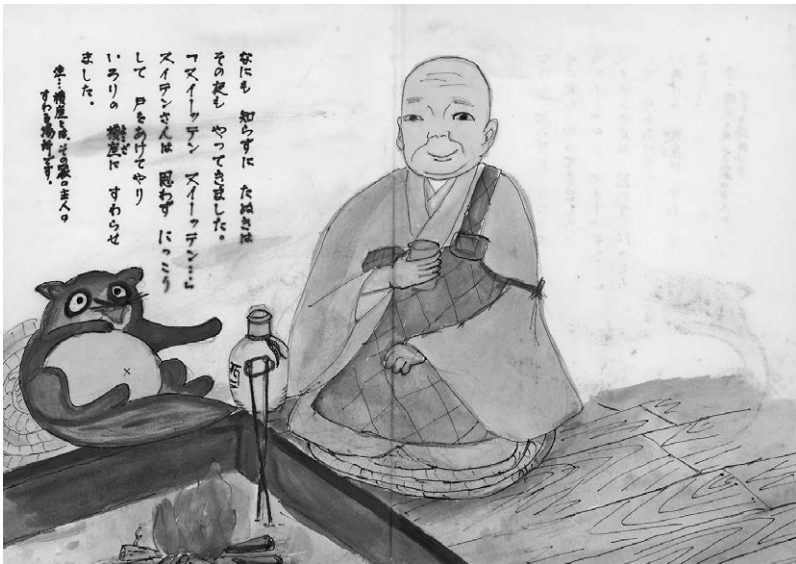 なにも 知らずに たぬきは
その夜も やってきました。
「スイーッテン スイーッテン…」
スイテンさんは 思わず にっこり
して 戸をあけてやり
いろりの 横座に すわらせ
よこざ
ました。
注…横座とは、その家の主人の
すわる場所です。